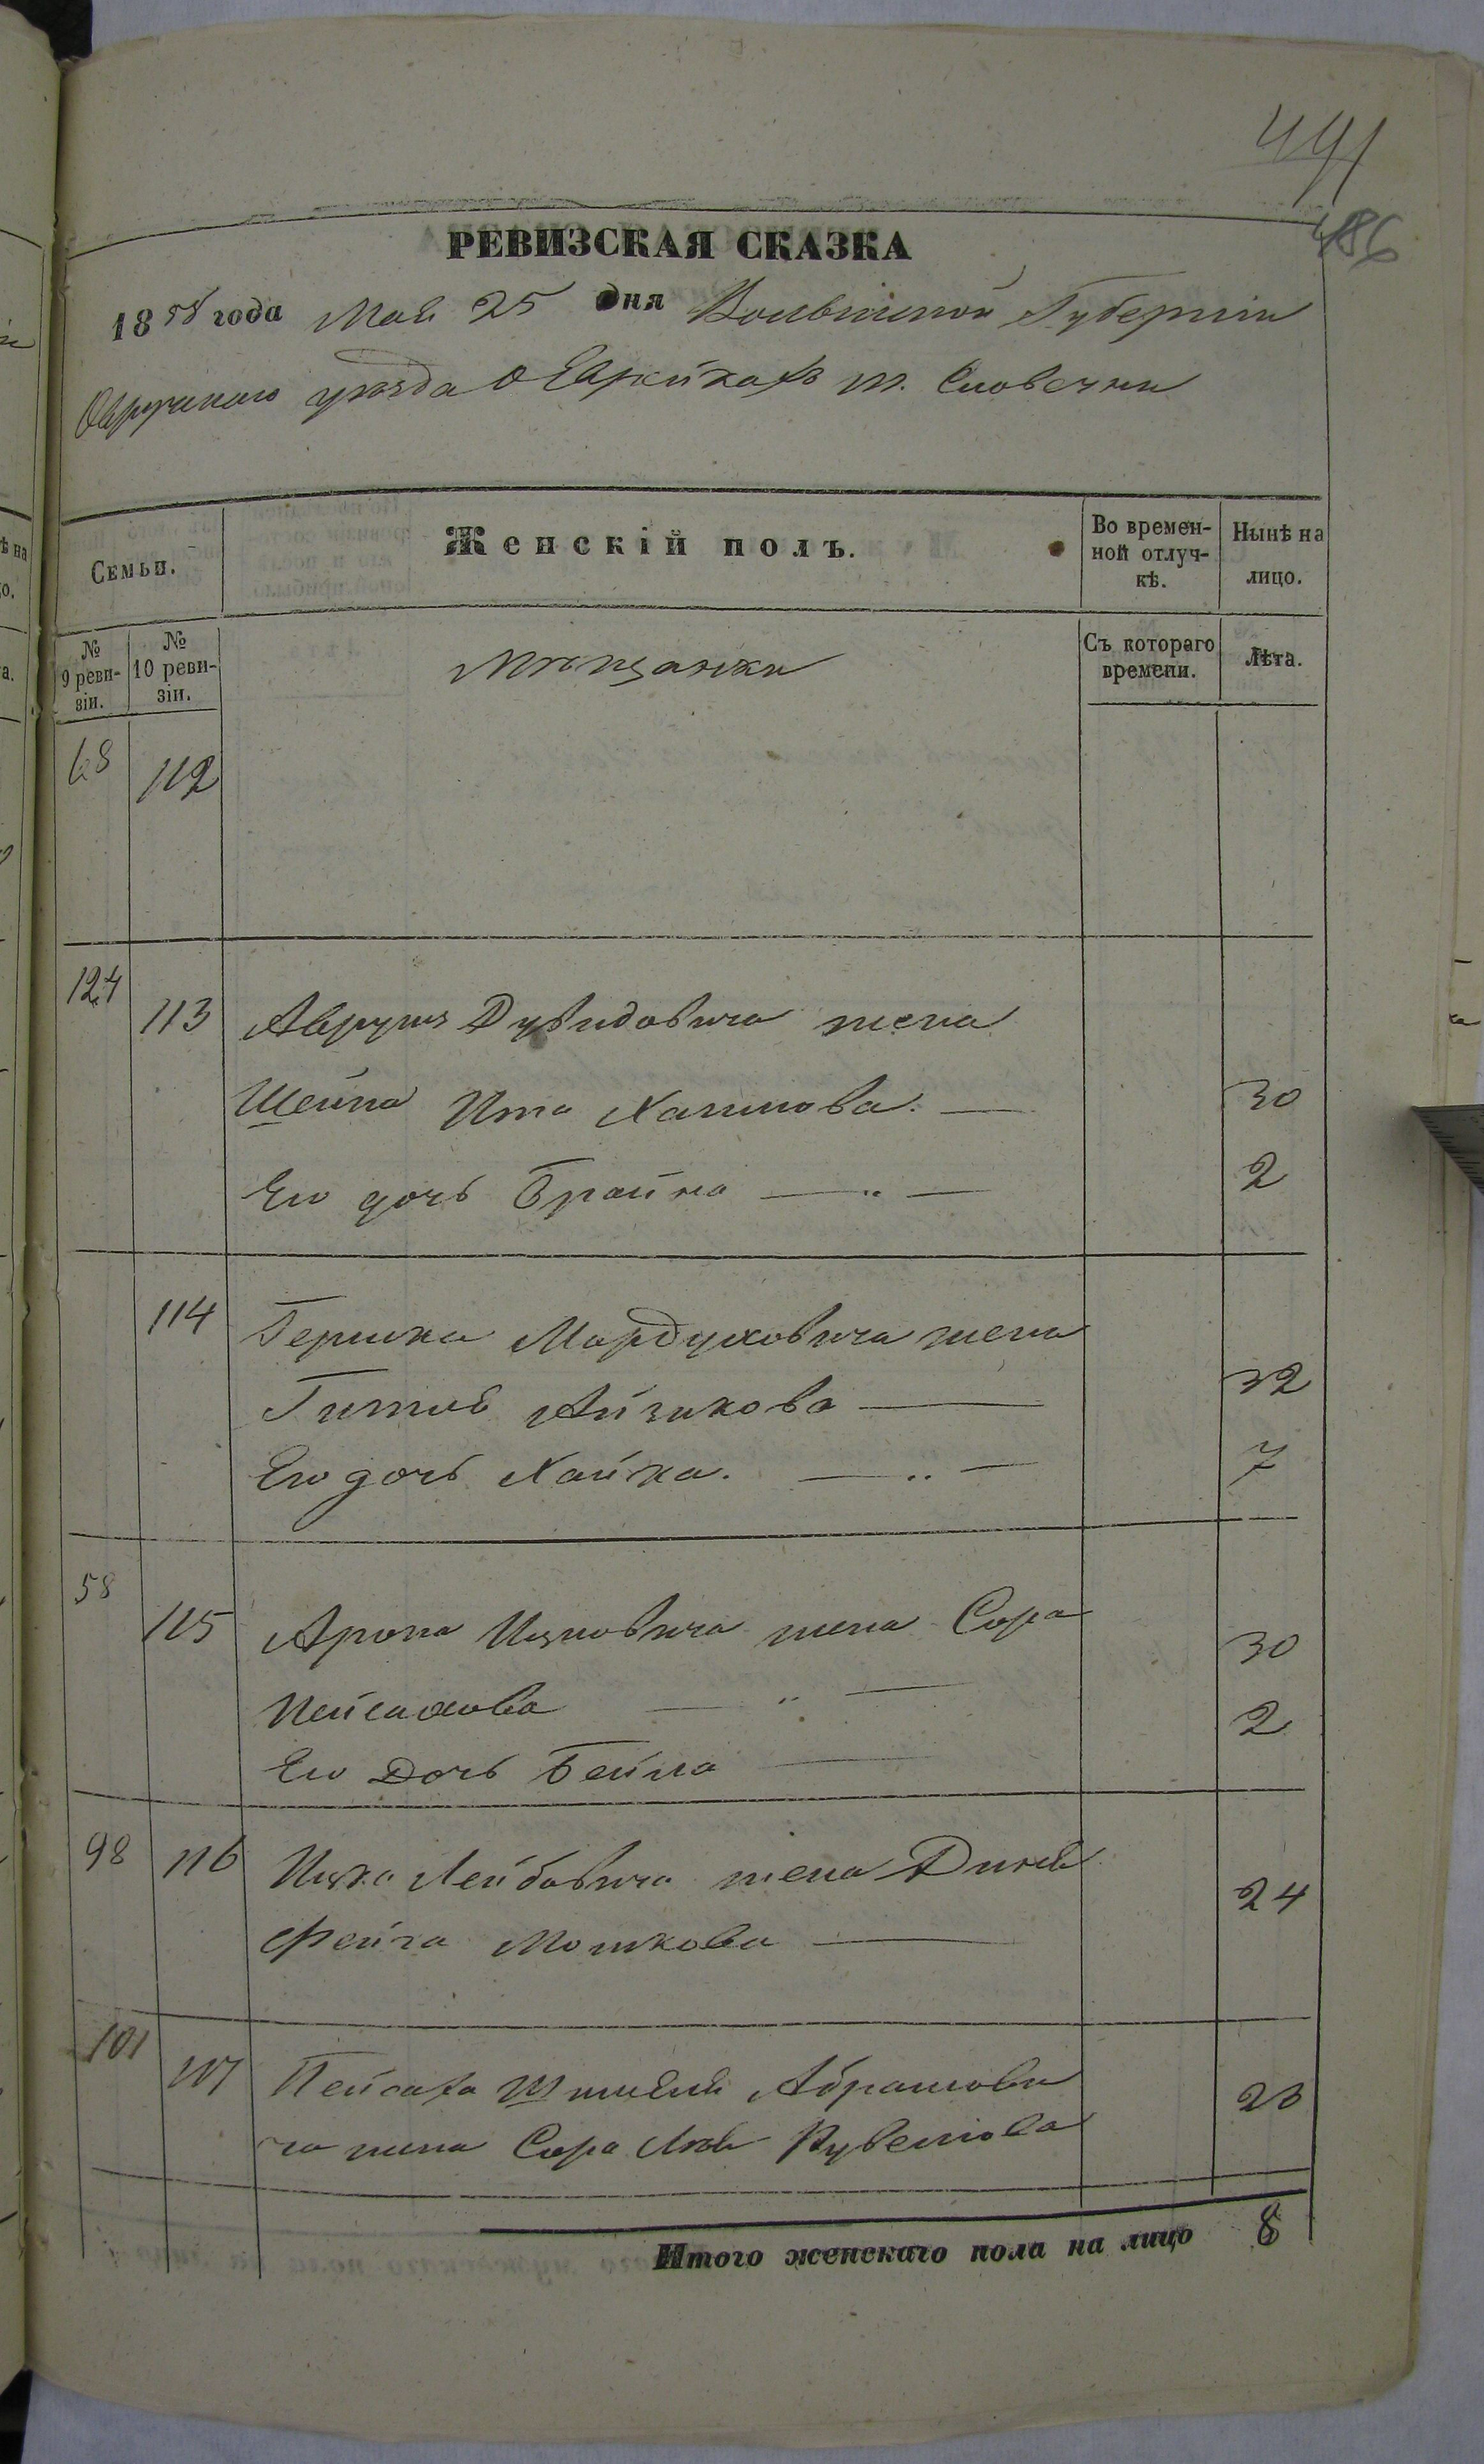 491
486
РЕВИЗСКАЯ СКАЗКА
1858 года Мая 25 дня Волынской Губерніи
Овручскаго уѣзда о Еврейкахъ м. Словечни
Семьи.
Женскій полъ.
Во времен-
ной отлуч-
кѣ.
Нынѣ на
лицо.
№
9 реви-
зіи.
№
10 реви-
зіи.
Мѣщанки
Съ котораго
времени.
Лѣта.
68 112
124 113 Аврума Дувидовича жена
Шейна Ита Хаимова. — 30
Его дочь Брайна — " — 2
114 Гершка Мордуховича жена
Гитля Айзикова — 32
Его дочь Хайка. — " — 7
58 115 Арона Ицковича жена Сора 30
Пейсахова — " —
Его Дочь Бейла — 2
98 116 Ицка Лейбовича жена Диня
Фейга Мошкова — 24
101 117 Пейсаха Шмиеля Абрамови
ча жена Сора Рувенова 20
Итого женскаго пола на лицо 8